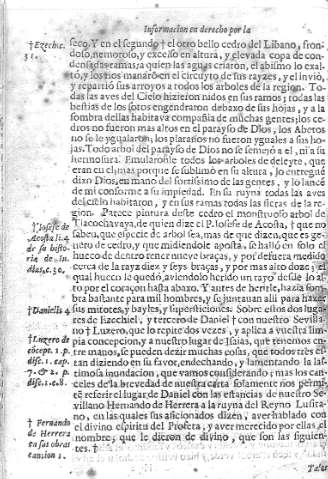 Informacion en derecho por la
† Ezech. c. 31.
seco. Y en el segundo † el otro bello cedro del Libano, fron-
doso, nemoroso, y excelso en altura, y elevada copa de con-
densadas ramas, a quien las aguas criaron, el abismo lo exal-
tó, y los rios manarō en el circuyto de sus rayzes, y el invió,
y repartió sus arroyos a todos los arboles de la region. To-
das las aves del Cielo hizieron nidos en sus ramos; todas las
bestias de los sotos engendraron debaxo de sus hojas, y a la
sombra dellas habitava compañia de muchas gentes; los ce-
dros no fueron mas altos en el parayso de Dios, los abetos
no se le ygualaron, los platanos no fueron yguales a sus ho-
jas. Todo arbol del parayso de Dios no se semejó a el, ni a su
hermosura. Emularonle todos los arboles de deleyte, que
eran en el mas porque se sublimó en su altura, lo entregué
dixo Dios, en mano del fortissimo de las gentes, y lo lancé
de mi conforme a su impiedad. En su ruyna todas las aves
del cielo habitaron, y en sus ramos todas las fieras de la re-
gion. Parece pintura deste cedro el monstruoso arbol de
Tlacochavaya, de quien dize el P. Iosefe de Acosta, † que no
sabe, que especie de arbol sea, mas de que dizen, que es ge-
nero de cedro, y que midiendole aposta, se halló en solo el
hueco de dentro tener nueve braças, y por defuera medido
cerca de la rayz diez y seys braças, y por mas alto doze; el
qual hueco le quedó, aviendolo herido un rayo desde lo al-
to por el coraçon hasta abaxo. Y antes de herirle, hazia som
bra bastante para mil hombres, y se juntauan alli para hazer
sus mitotes, y bayles, y supersticiones. Sobre estos dos luga-
res de Ezechiel, y tercero de Daniel † con nuestro Sevilla-
no † Luzero, que lo repite dos vezes, y aplica a vuestra lim
pia concepcion, y a nuestro lugar de Isaias, que tenemos en-
tre manos, se pueden dezir muchas cosas, que todos tres es-
tan diziendo en su favor, endechando, y lamentando la las-
timosa inundacion, que vamos considerando; mas los can-
celes de la brevedad de nuestra carta solamente nos permi-
tē referir el lugar de Daniel con las estancias de nuestro Se-
villano Hernando de Herrera a la ruyna del Reyno Lusita-
no, en las quales sus aficionados dizen, aver hablado con
el divino espiritu del Profeta, y aver merecido por ellas el
nombre, que le dieron de divino, que son las siguien-
tes. †
† Iosefe de Acosta li. 4 de su histo-
ria de Indias, c. 30.
† Daniel. 4
† Luzero de concept. 1. p. disc. 1. cap. 7. & 2. p. disc. 1. c. 8.
† Fernando de Herrera en sus obras cancion 1.